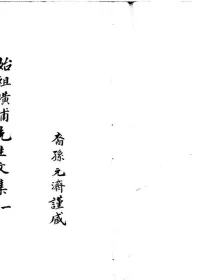 裔孫元濟謹
始祖橫浦先生文集一